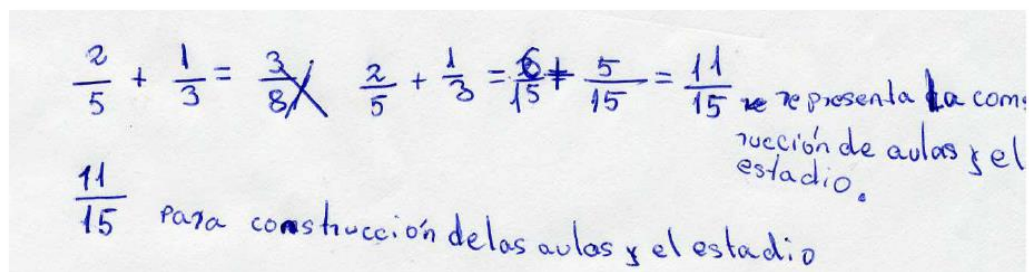 2/5 + 1/3 = 3/8 2/5 + 1/3 = 6/15 + 5/15 = 11/15 representa la com
rucción de aulas y el
estadio.
11/15 para construcción de las aulas y el estadio